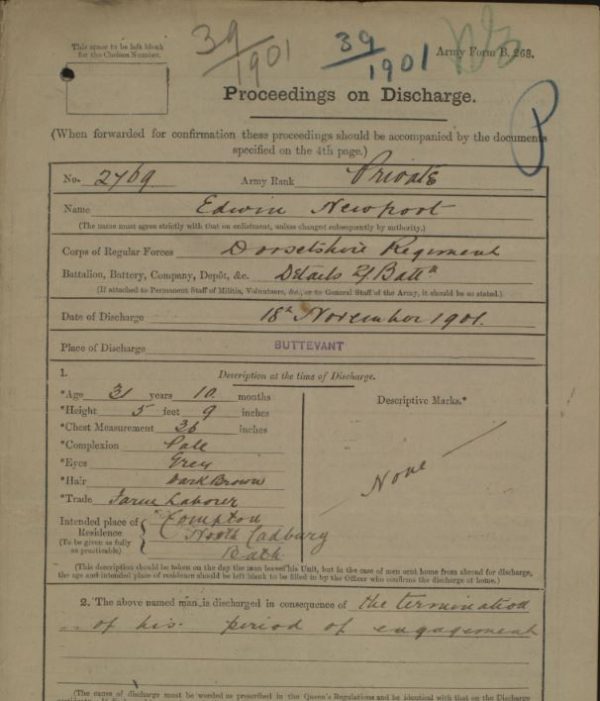 This space to be left blank
for the Chelsea Number.
39/1901
39/1901
Army Form B. 268.
Proceedings on Discharge.
(When forwarded for confirmation these proceedings should be accompanied by the documents
specified on the 4th page.)
No. 2769 Army Rank Private
Name Edwin Newport
(The name must agree strictly with that on enlistment, unless changed subsequently by authority.)
Corps of Regular Forces Dorsetshire Regiment
Battalion, Battery, Company, Depôt, &c. Details 2/Battn
(If attached to Permanent Staff of Militia, Volunteers, &c., or to General Staff of the Army, it should be so stated.)
Date of Discharge 18th November 1901.
Place of Discharge BUTTEVANT
1. Description at the time of Discharge.
*Age 31 years 10 months
*Height 5 feet 9 inches
*Chest Measurement 36 inches
*Complexion Pale
*Eyes Grey
*Hair Dark Brown
*Trade Farm Laborer
Intended place of Residence
(To be given as fully as practicable)
Compton
North Cadbury
Bath
Descriptive Marks.*
None
(This description should be taken on the day the man leaves his Unit, but in the case of men sent home from abroad for discharge,
the age and intended place of residence should be left blank to be filled in by the Officer who confirms the discharge at home.)
2. The above named man is discharged in consequence of the termination
of his period of engagement
(The cause of discharge must be worded as prescribed in the Queen's Regulations and be identical with that on the Discharge